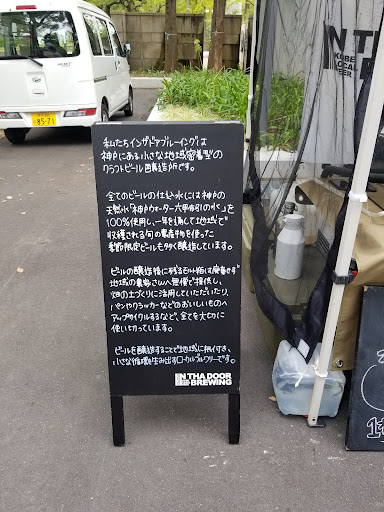 私たちインザドアブルーイングは
神戸にある小さな地域密着型の
クラフトビール醸造所です。
全てのビールの仕込水には神戸の
天然水「神戸ウォーター六甲布引の水」を
100%使用し、一年を通して地域で
収穫される旬の農産物を使った
季節限定ビールも多く醸造しています。
ビールの醸造後に残るモルト粕は廃棄せず
地域の農家さんへ無償で提供し、
畑の土づくりに活用していただいたり、
パンやクラッカーなどのおいしいものへ
アップサイクルするなど、全てを大切に
使い切っています。
ビールを醸造することで地域に根付き、
小さな循環を生み出すローカルブルワリーです。
IN THA DOOR
BREWING
IN THA
DOOR
KOBE
LOCAL
BEER
85-71